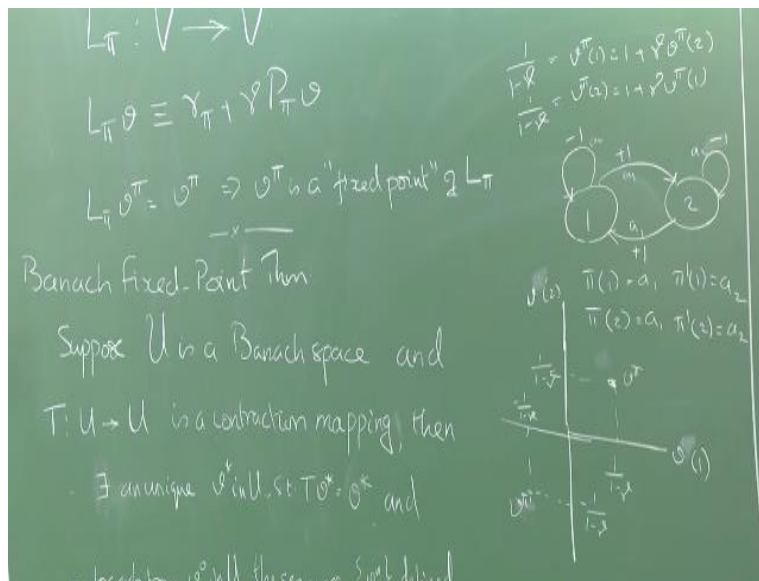 L_π : V → V
L_π v ≡ r_π + γ P_π v
L_π v^π = v^π ⇒ v^π is a "fixed point" of L_π
— x —
Banach Fixed-Point Thm.
Suppose U is a Banach space and
T: U → U is a contraction mapping, then
∃ an unique v* in U, s.t. Tv* = v* and
1/(1-γ) = v^π(1) = 1 + γ v^π(2)
1/(1-γ) = v^π(2) = 1 + γ v^π(1)
-1
+1
-1
1
2
a_1
+1
π(1) = a_1 π'(1) = a_2
π(2) = a_1 π'(2) = a_2
v(2)
1/(1-γ)
v^π
-1/(1-γ)
v(1)
1/(1-γ)
v^π'
-1/(1-γ)